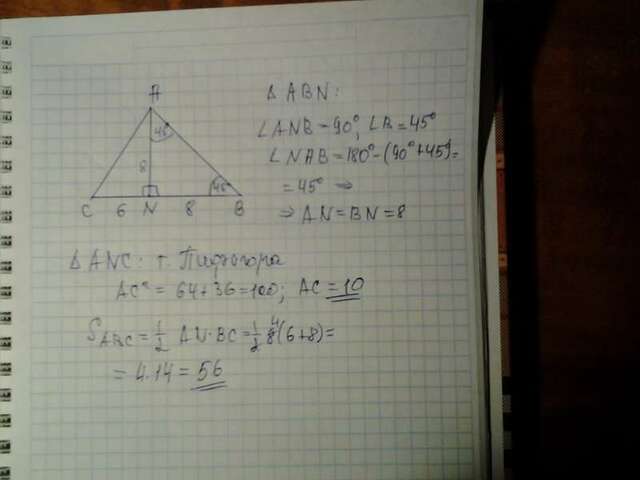 A
45°
8
45°
C 6 N 8 B
Δ ABN:
∠ANB = 90°, ∠B = 45°
∠NAB = 180° - (90° + 45°) =
= 45° ⇒
⇒ AN = BN = 8
Δ ANC: т. Пифагора
AC² = 64 + 36 = 100; AC = 10
S_ABC = 1/2 AN · BC = 1/2 8 4 (6 + 8) =
= 4 · 14 = 56